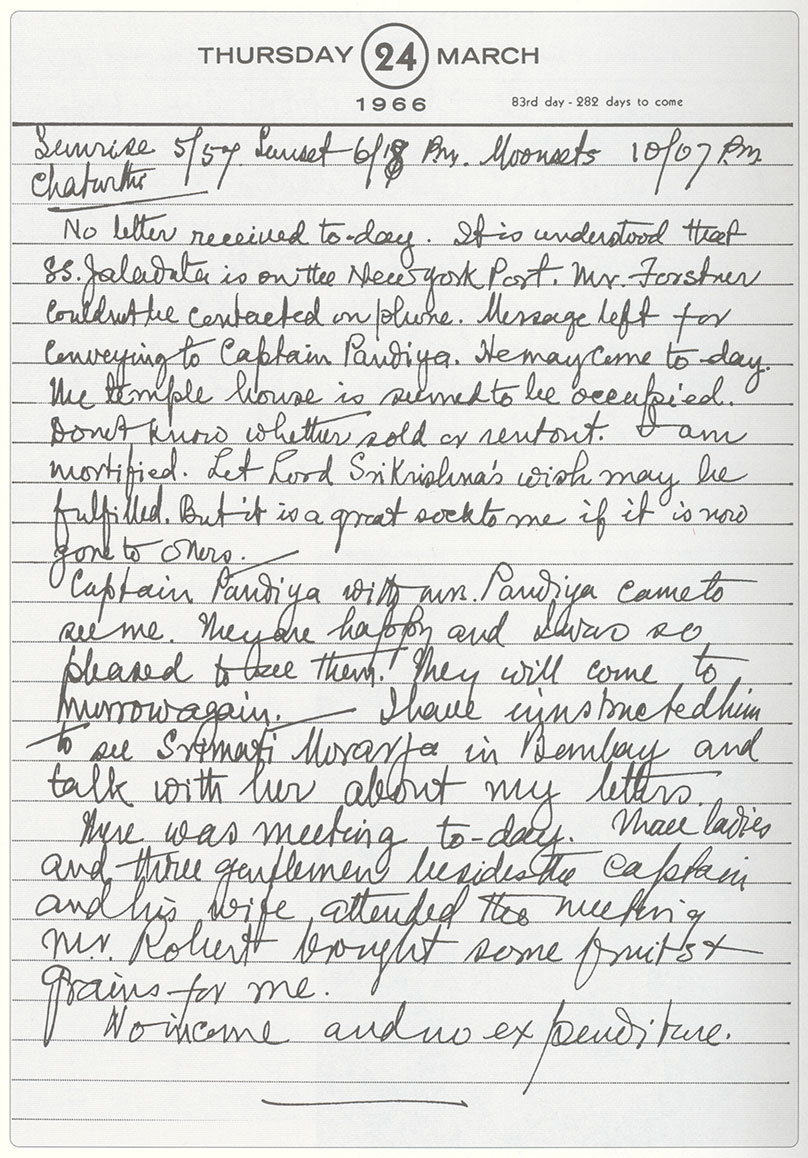 THURSDAY 24 MARCH
1966 83rd day - 282 days to come
Sunrise 5/57 Sunset 6/18 Pm. Moonsets 10/07 P.m.
Chaturthi
No letter received to-day. It is understood that
SS. Jaladuta is on the New york Port. Mr. Forstner
couldnt be contacted on phone. Message left for
conveying to Captain Pandiya. He may come to-day.
The temple house is seemed to be occupied.
Donot know whether sold or rentout. I am
mortified. Let Lord Sri Krishna's wish may be
fulfilled. But it is a great sock to me if it is now
gone to others.
Captain Pandiya with mrs. Pandiya came to
see me. They are happy and I was so
pleased to see them. They will come to
morrow again. I have instructed him
to see Srimati Morarja in Bombay and
talk with her about my letters.
There was meeting to-day. Three ladies
and three gentlemen besides the captain
and his wife attended the meeting
Mr. Robert brought some fruits &
grains for me.
No income and no expenditure.